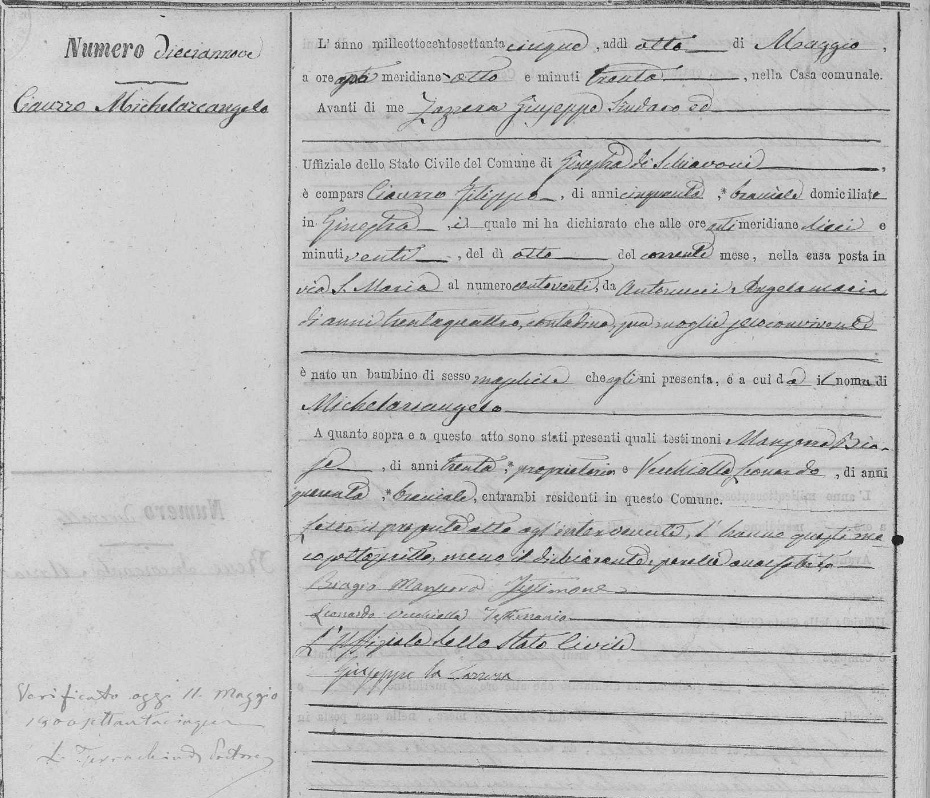 Numero diecianove
Ciaurro Michelarcangelo
L' anno milleottocentosettantacinque, addì otto di Maggio,
a ore meridiane otto e minuti trenta, nella Casa comunale.
Avanti di me Giuseppe Sindaco ed
Uffiziale dello Stato Civile del Comune di Ginestra di Schiavoni,
è compars Ciaurro Filippo, di anni cinquanta, bracciale domiciliato
in Ginestra, il quale mi ha dichiarato che alle ore meridiane dieci e
minuti venti, del dì otto del corrente mese, nella casa posta in
via S. Maria al numero centoventi, da Antonucci Angelamaria
di anni trentaquattro, contadina, sua moglie seco convivente
è nato un bambino di sesso maschile che egli mi presenta, e a cui dà il nome di
Michelarcangelo
A quanto sopra e a questo atto sono stati presenti quali testimoni Biag-
, di anni trenta, proprietario e Vecchiolla Leonardo, di anni
quaranta, bracciale, entrambi residenti in questo Comune.
Letto il presente atto agli intervenuti, l' hanno questi me-
co sottoscritto, meno il dichiarante, perché analfabeta
Biagio Testimone
Leonardo Vecchiolla Testimonio
L' Uffiziale dello Stato Civile
Giuseppe
Verificato oggi 11 Maggio